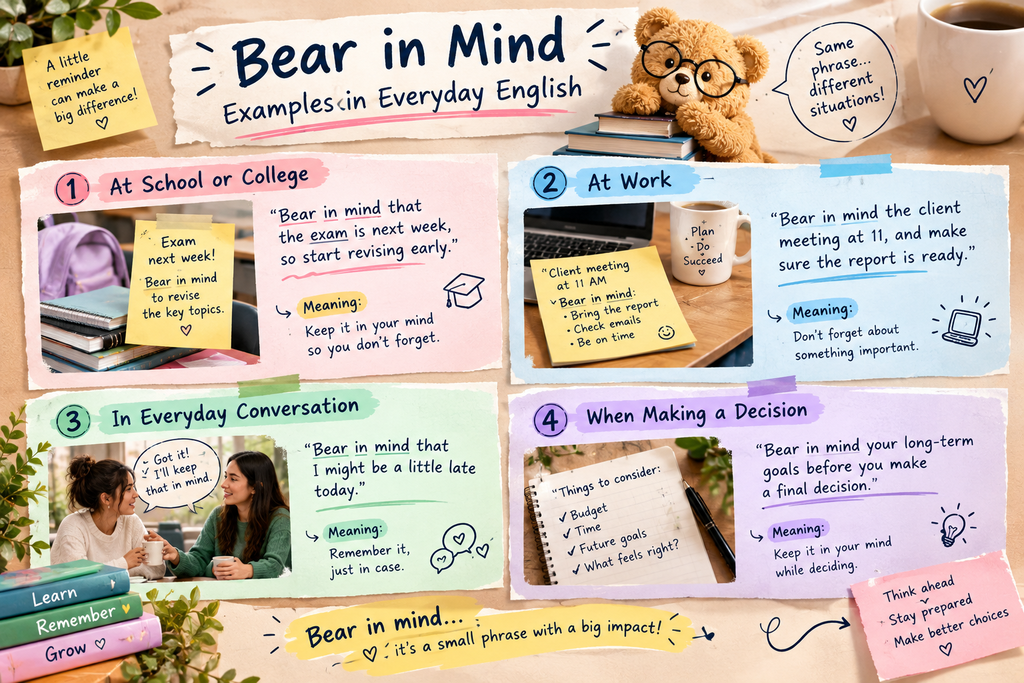 A little
reminder
can make a
big difference!
Bear in Mind
Examples in Everyday English
Same
phrase...
different
situations!
1 At School or College
Exam
next week!
Bear in mind
to revise
the key topics.
"Bear in mind that
the exam is next week,
so start revising early."
Meaning:
Keep it in your mind
so you don't forget.
2 At Work
"Client meeting
at 11 AM
Bear in mind:
• Bring the report
• Check emails
• Be on time
Plan
• Do
Succeed
"Bear in mind the client
meeting at 11, and make
sure the report is ready."
Meaning:
Don't forget about
something important.
3 In Everyday Conversation
Got it!
I'll keep
that in mind.
"Bear in mind that
I might be a little late
today."
Meaning:
Remember it,
just in case.
4 When Making a Decision
"Things to consider:
✓ Budget
✓ Time
✓ Future goals
✓ What feels right?
"Bear in mind your long-term
goals before you make
a final decision."
Meaning:
Keep it in your mind
while deciding.
Learn
Remember
Grow
Bear in mind... :
it's a small phrase with a big impact!
Think ahead
Stay prepared
Make better choices